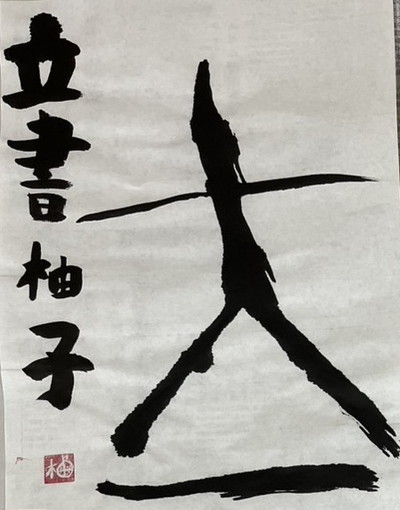 立
立書柚子
柚